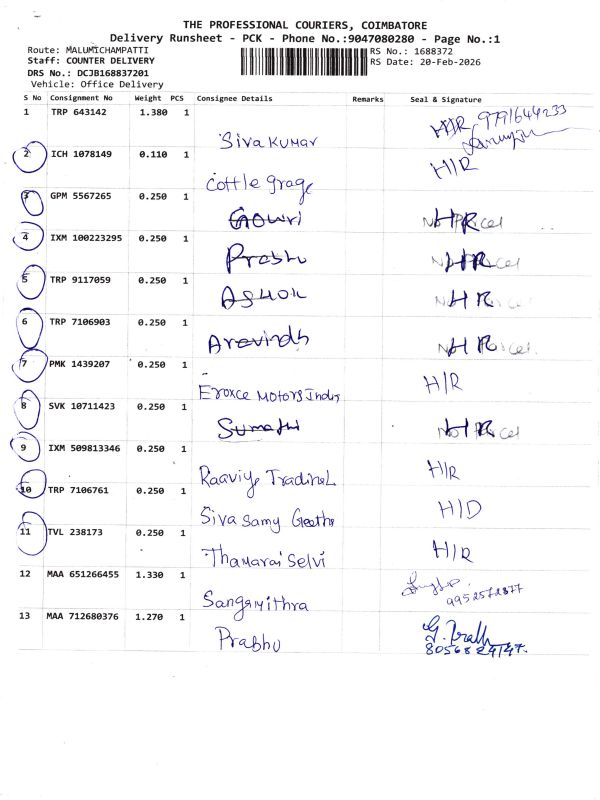 THE PROFESSIONAL COURIERS, COIMBATORE
Delivery Runsheet - PCK - Phone No.:9047080280 - Page No.:1
Route: MALUMICHAMPATTI RS No.: 1688372
Staff: COUNTER DELIVERY RS Date: 20-Feb-2026
DRS No.: DCJB168837201
Vehicle: Office Delivery
S No Consignment No Weight PCS Consignee Details Remarks Seal & Signature
1 TRP 643142 1.380 1 Siva Kumar H/R 9791644233
2 ICH 1078149 0.110 1 Cottle grage H/R
3 GPM 5567265 0.250 1 Gowri HR
4 IXM 100223295 0.250 1 Prabhu HR
5 TRP 9117059 0.250 1 Ashok HR
6 TRP 7106903 0.250 1 Aravindh HR
7 PMK 1439207 0.250 1 Eroxce Motors India H/R
8 SVK 10711423 0.250 1 Sumathi HR
9 IXM 509813346 0.250 1 Raaviye H/R
10 TRP 7106761 0.250 1 Siva Samy Geetha H/D
11 TVL 238173 0.250 1 Thamarai Selvi H/R
12 MAA 651266455 1.330 1 Sangamithra
13 MAA 712680376 1.270 1 Prabhu